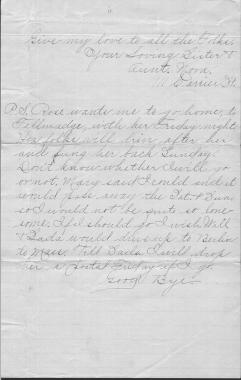 Give my love to all the Folks.
Your Loving Sister &
Aunt. Nora.
111 Carrier St.
P.S. Rose wants me to go home, to
Tallmadge, with her Friday night
her folks will drive after her
and bring her back Sunday.
Don't know whether I will go
or not, Mary said I could and it
would pass away the Sat. & Sun.
so I would not be quite so lone-
some. If I should go I wish Will
& Dada would drive up to Berlin
to Mass. Tell Dada I will drop
her a Postal Friday if I go.
Good Bye.